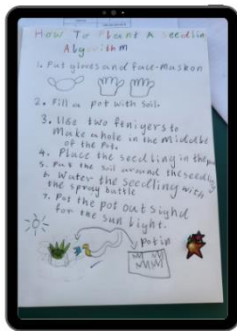 How To Plant A Seedling
Algorithm
1. Put gloves and face-mask on
2. Fill a pot with soil.
3. Use two feniyers to
make a hole in the middle
of the pot.
4. Place the seedling in the pot
5. Put the soil around the seedling
6. Water the seedling with
the spray buttle
7. Pot the pot out sighd
for the sun light.
pot in